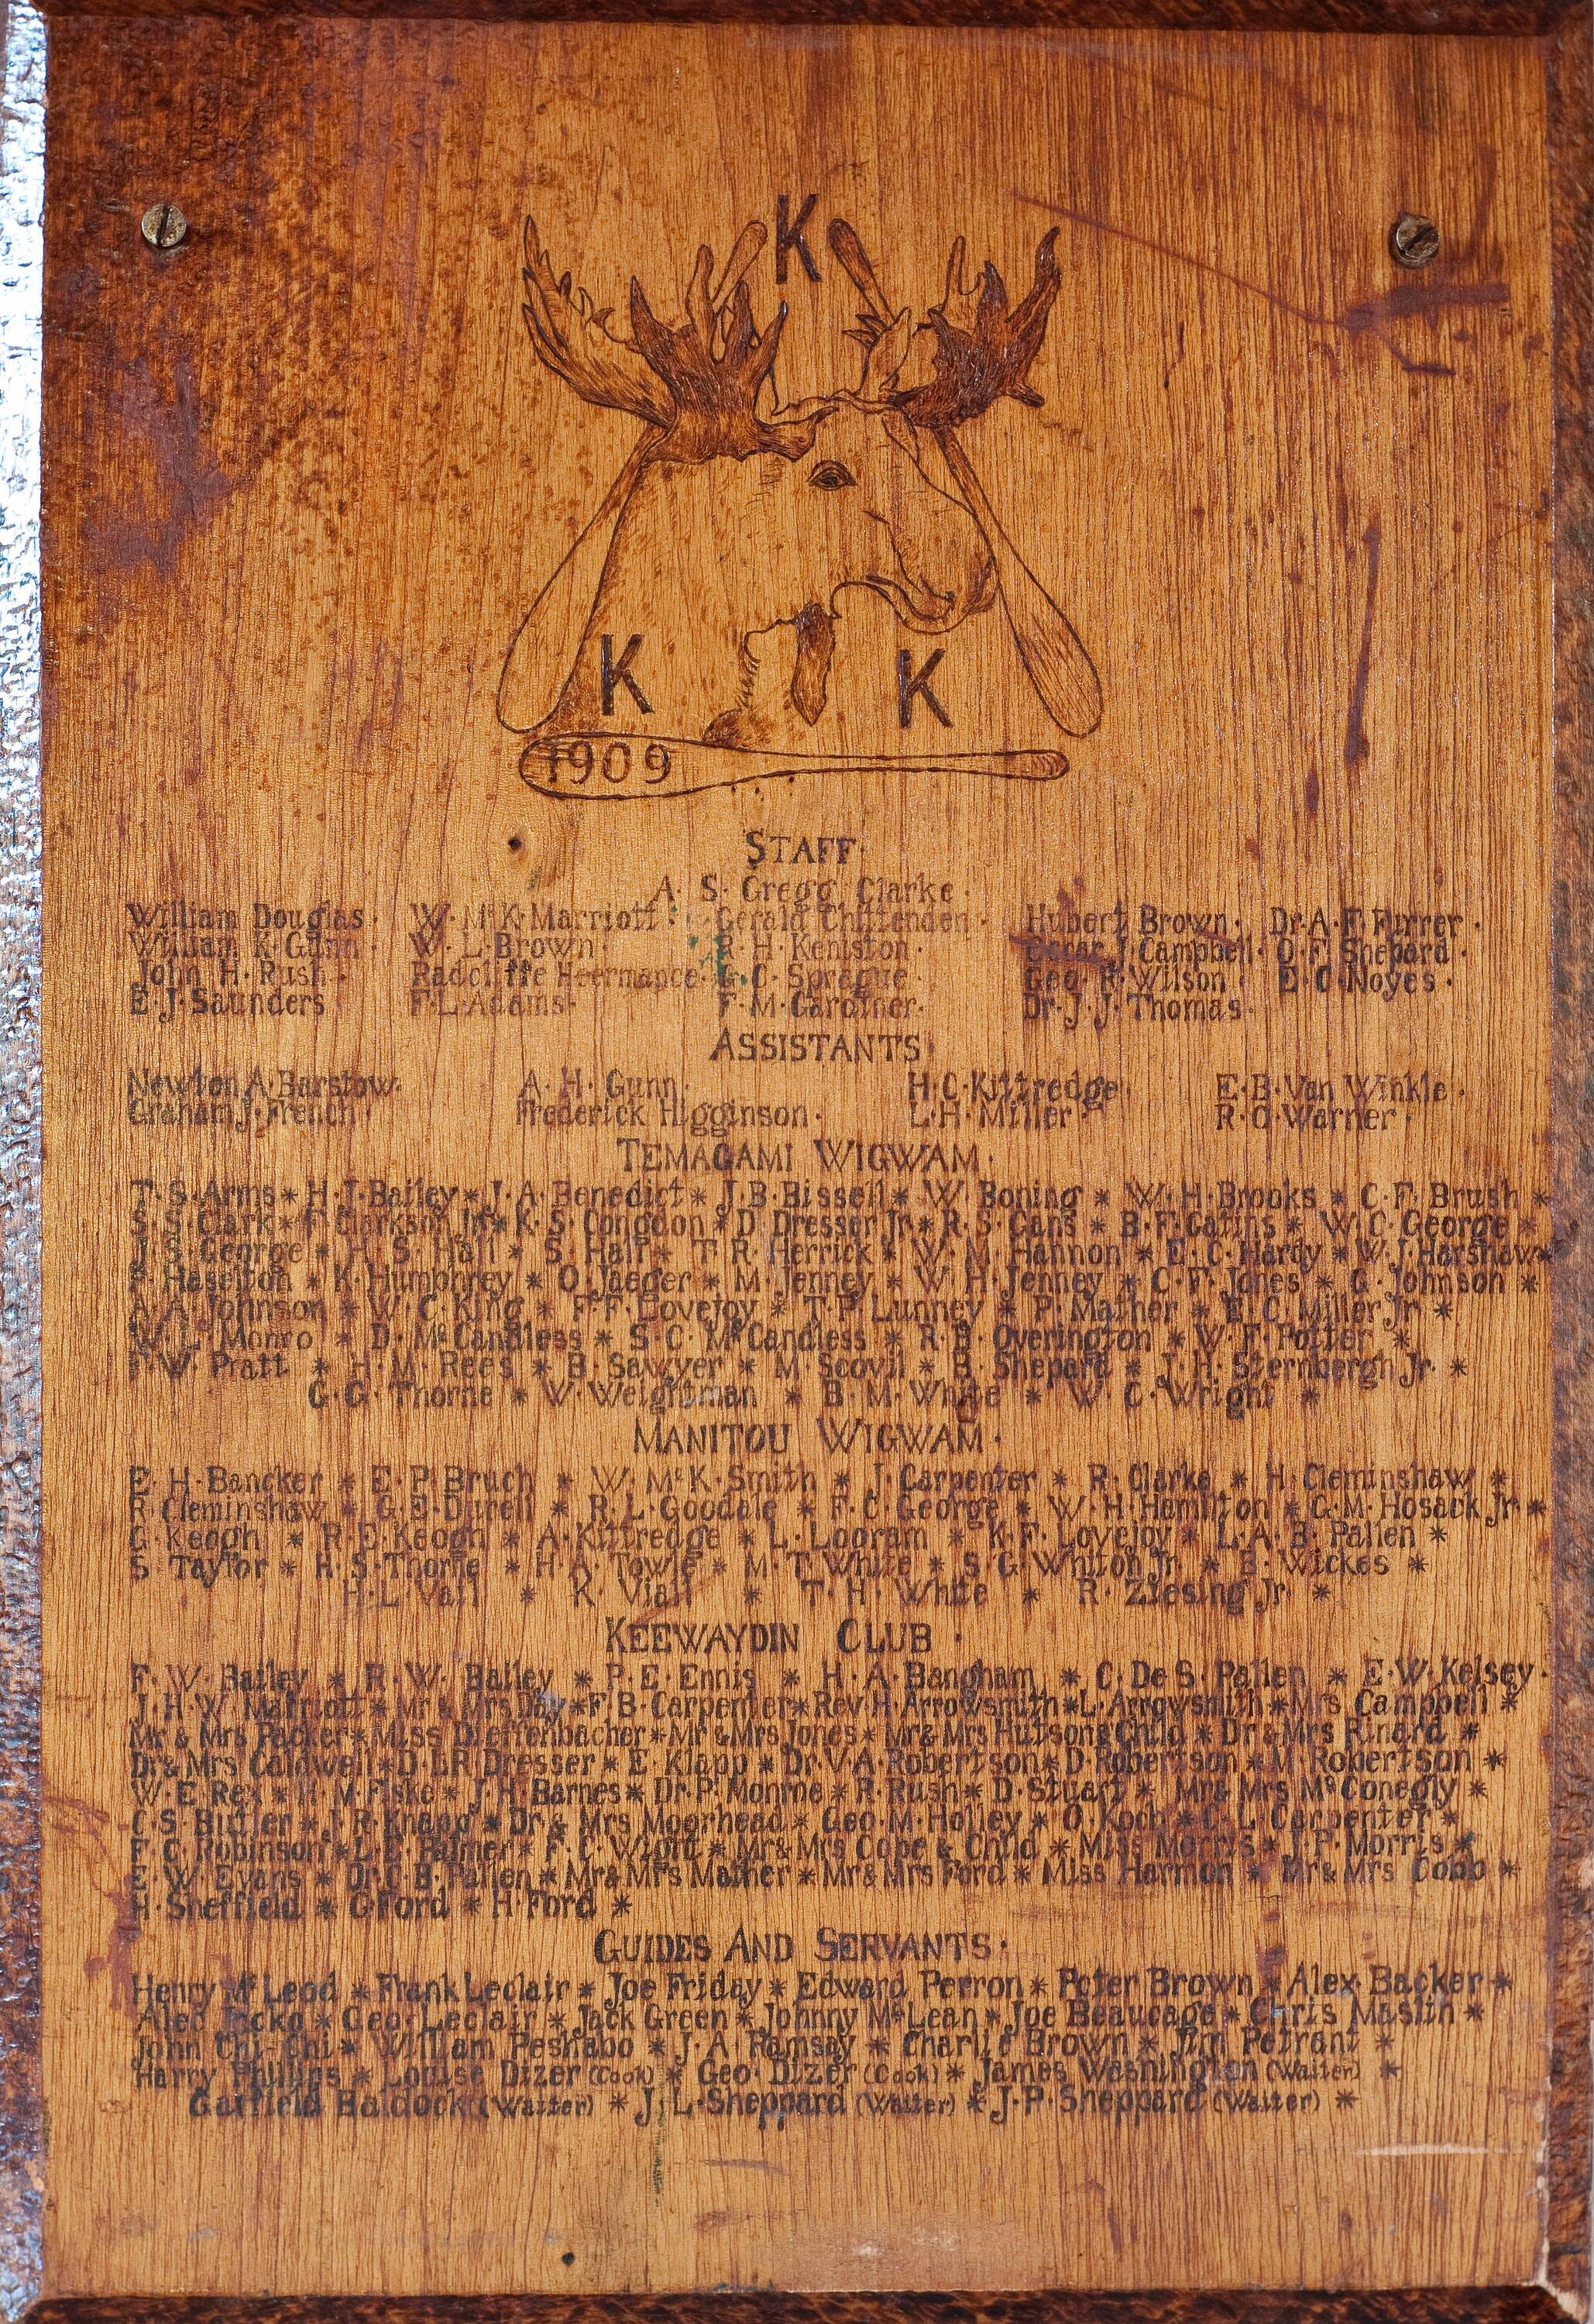 K
K K
1909
STAFF·
A· S· Gregg Clarke·
William Douglas· W· McK·Marriott· Gerald Chittenden· Hubert Brown· Dr·A·F·Furrer·
William K·Gunn· W·L·Brown· R·H·Keniston· Oscar J·Campbell· O·F·Shepard·
John H·Rush· Radcliffe Heermance· G·C·Sprague· Geo·R·Wilson· E·C·Noyes·
E·J·Saunders F·L·Adams· F·M·Gardiner· Dr·J·J·Thomas·
ASSISTANTS·
Newton A·Barstow· A·H·Gunn· H·C·Kittredge· E·B·Van Winkle·
Graham J·French· Frederick Higginson· L·H·Miller· R·C·Warner·
TEMAGAMI WIGWAM·
T·S·Arms * H·I·Bailey * J·A·Benedict * J·B·Bissell * W·Boning * W·H·Brooks * C·F·Brush *
S·S·Clark * F·Clarkson Jr * K·S·Congdon * D·Dresser Jr * R·S·Gans * B·F·Gatins * W·C·George *
J·S·George * H·S·Hall * S·Hall * T·R·Herrick * W·M·Hannon * E·C·Hardy * W·J·Harshaw *
Haselton * K·Humphrey * O·Jaeger * M·Jenney * W·H·Jenney * C·F·Jones * G·Johnson *
A·A·Johnson * W·C·King * F·F·Lovejoy * T·P·Lunney * P·Mather * E·C·Miller Jr *
W·L·Monro * D·McCandless * S·C·McCandless * R·B·Overington * W·F·Potter *
F·W·Pratt * H·M·Rees * B·Sawyer * M·Scovil * B·Shepard * J·H·Sternbergh Jr· *
G·G·Thorne * W·Weightman * B·M·White * W·C·Wright *
MANITOU WIGWAM·
E·H·Bancker * E·P·Bruch * W·McK·Smith * J·Carpenter * R·Clarke * H·Cleminshaw *
R·Cleminshaw * G·E·Durell * R·L·Goodale * F·C·George * W·H·Hamilton * G·M·Hosack Jr *
G·Keogh * R·D·Keogh * A·Kittredge * L·Looram * K·F·Lovejoy * L·A·B·Pallen *
S·Taylor * H·S·Thorne * H·A·Towle * M·T·White * S·G·Whiton Jr * B·Wickes *
H·L·Vail * K·Viall * T·H·White * R·Ziesing Jr *
KEEWAYDIN CLUB·
F·W·Bailey * R·W·Bailey * P·E·Ennis * H·A·Bangham * C·De S·Pallen * E·W·Kelsey·
J·H·W·Marriott * Mr & Mrs Day * F·B·Carpenter * Rev·H·Arrowsmith * L·Arrowsmith * Mrs Campbell *
Mr & Mrs Packer * Miss Dieffenbacher * Mr & Mrs Jones * Mr & Mrs Hutson & Child * Dr & Mrs Rinard *
Dr & Mrs Caldwell * D·LR·Dresser * E·Klapp * Dr·V·A·Robertson * D·Robertson * M·Robertson *
W·E·Rex * H·V·Fiske * J·H·Barnes * Dr·P·Monroe * R·Rush * D·Stuart * Mr & Mrs McConegly *
C·S·Butler * J·R·Knapp * Dr & Mrs Moorhead * Geo·M·Holley * O·Koch * C·L·Carpenter *
F·C·Robinson * L·E·Palmer * F·C·Wiord * Mr & Mrs Cope & Child * Miss Morris * J·P·Morris *
E·W·Evans * Dr·C·B·Pallen * Mr & Mrs Mather * Mr & Mrs Ford * Miss Harmon * Mr & Mrs Cobb *
H·Sheffield * G·Ford * H·Ford *
GUIDES AND SERVANTS·
Henry McLeod * Frank Leclair * Joe Friday * Edward Perron * Peter Brown * Alex·Backer *
Alec * Geo·Leclair * Jack Green * Johnny McLean * Joe Beaucage * Chris Maslin *
John Chi-Chi * William Peshabo * J·A·Ramsay * Charlie Brown * Jim Petrant *
Harry Phillips * Louise Dizer (Cook) * Geo·Dizer (Cook) * James Washington (Waiter) *
Garfield Baldock (Waiter) * J·L·Sheppard (Waiter) * J·P·Sheppard (Waiter) *